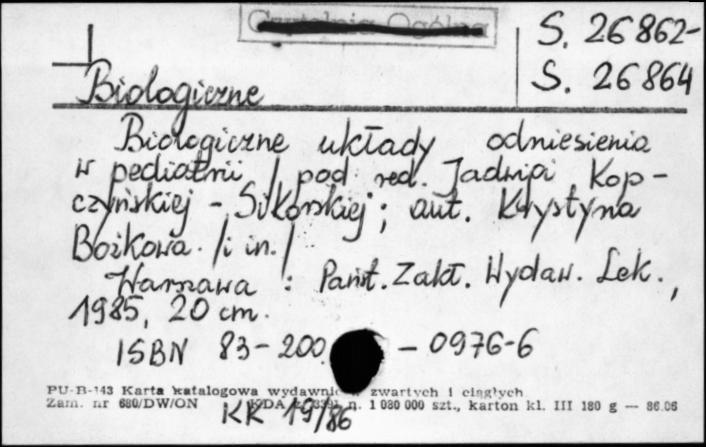 Czytelnia Ogólna
S. 26862-
S. 26864
Biologiczne
Biologiczne układy odniesienia
w pediatrii / pod red. Jadwigi Kop-
czyńskiej - Sikorskiej; aut. Krystyna
Bożkowa /i in./
Warszawa : Państ. Zakł. Wydaw. Lek.,
1985, 20 cm.
ISBN 83-200 - 0976-6
PU-B-143 Karta katalogowa wydawnictw zwartych i ciągłych
Zam. nr 680/DW/ON n. 1 080 000 szt., karton kl. III 180 g — 86.06
KK 19/86